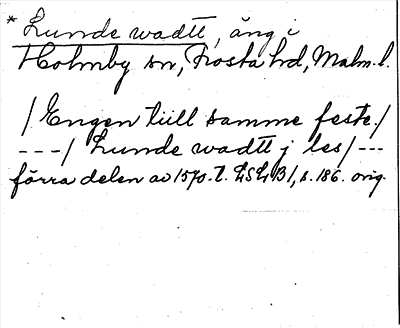 * Lunde wadtt, äng i
Holmby sn, Frosta hd, Malm. l.
/ Engen tiill samme feste./
---/ Lunde wadtt j les/---
förra delen av 1570-t. LSLB1, s. 186. orig.